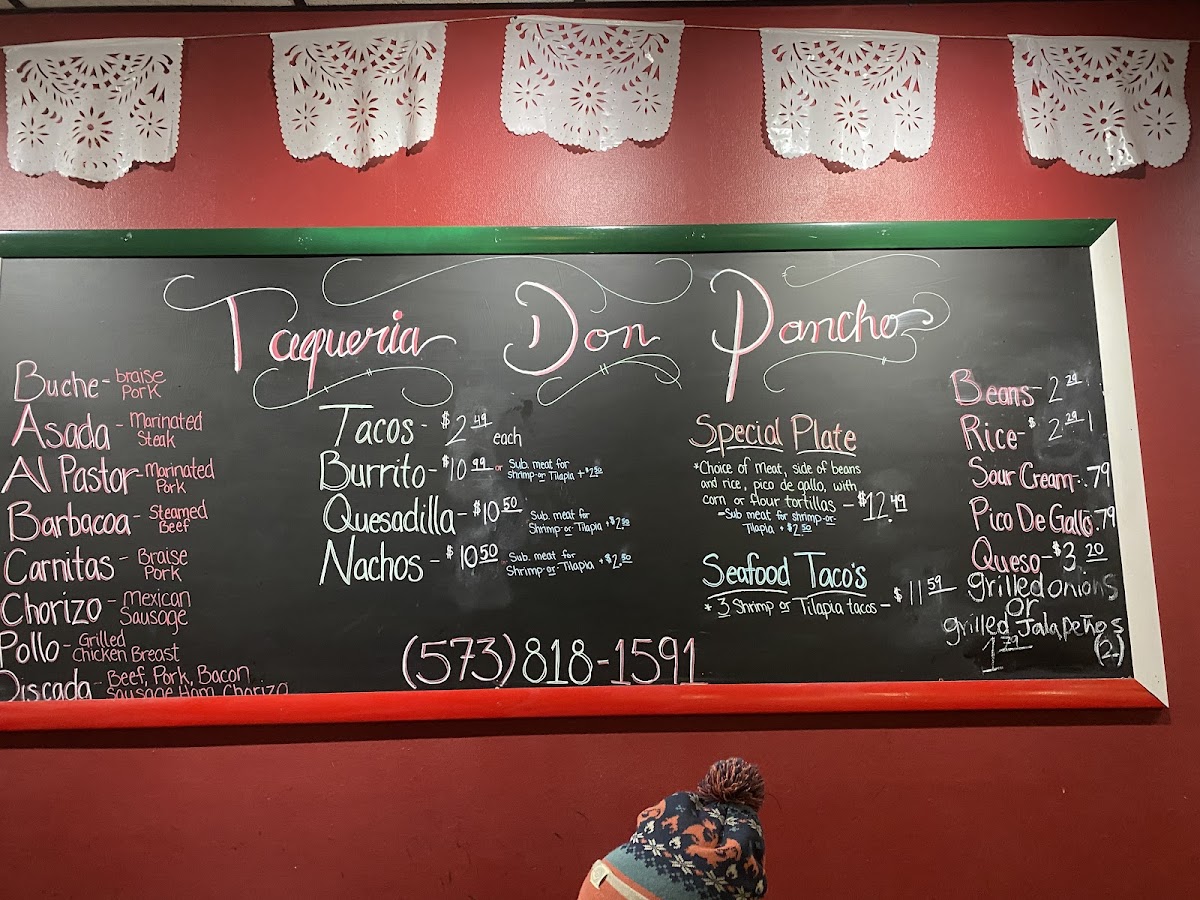 Taqueria Don Pancho
Buche - braise
Pork
Asada - Marinated
Steak
Al Pastor - Marinated
Pork
Barbacoa - Steamed
Beef
Carnitas - Braise
Pork
Chorizo - Mexican
Sausage
Pollo - Grilled
Chicken Breast
Discada - Beef, Pork, Bacon
Sausage, Ham, Chorizo
Tacos - $2.49 each
Burrito - $10.99 or Sub. meat for
shrimp-or-Tilapia + $2.50
Quesadilla - $10.50 Sub. meat for
Shrimp-or-Tilapia + $2.50
Nachos - $10.50 Sub. meat for
Shrimp-or-Tilapia + $2.50
(573) 818-1591
Special Plate
*Choice of Meat, side of beans
and rice, pico de gallo, with
corn or flour tortillas - $12.49
-Sub meat for shrimp-or-
Tilapia + $2.50
Seafood Taco's
* 3 Shrimp or Tilapia tacos - $11.59
Beans - 2.29
Rice - $2.29
Sour Cream - .79
Pico De Gallo .79
Queso - $3.20
grilled onions
or
grilled Jalapeños
1.79 (2)